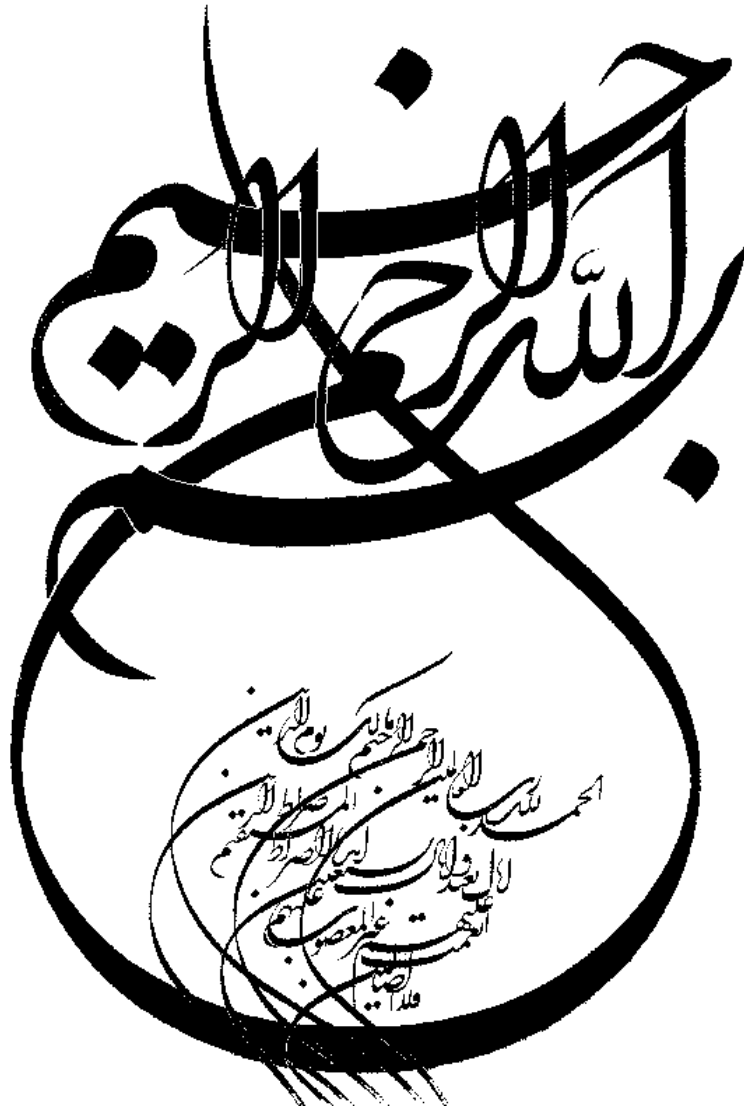 بسم الله الرحمن الرحیم
الحمد لله رب العالمین
الرحمن الرحیم
مالک یوم الدین
ایاک نعبد وایاک نستعین
اهدنا الصراط المستقیم
صراط الذین
انعمت علیهم
غیر المغضوب علیهم
ولا الضالین